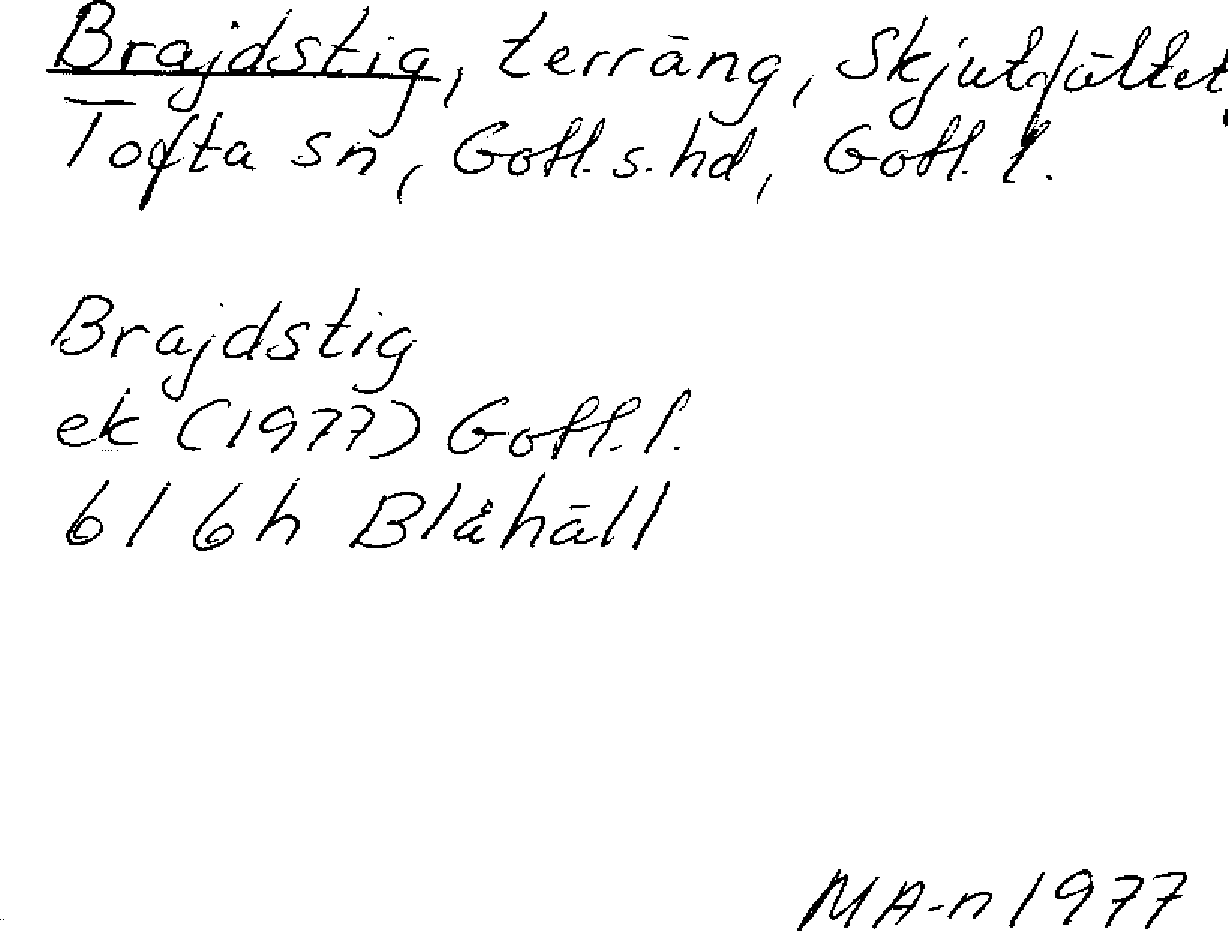 Brajdstig, terräng, Skjutfältet,
Tofta sn, Gotl. s. hd, Gotl. l.
Brajdstig
ek (1977) Gotl. l.
6I 6h Blåhäll
MA-n 1977